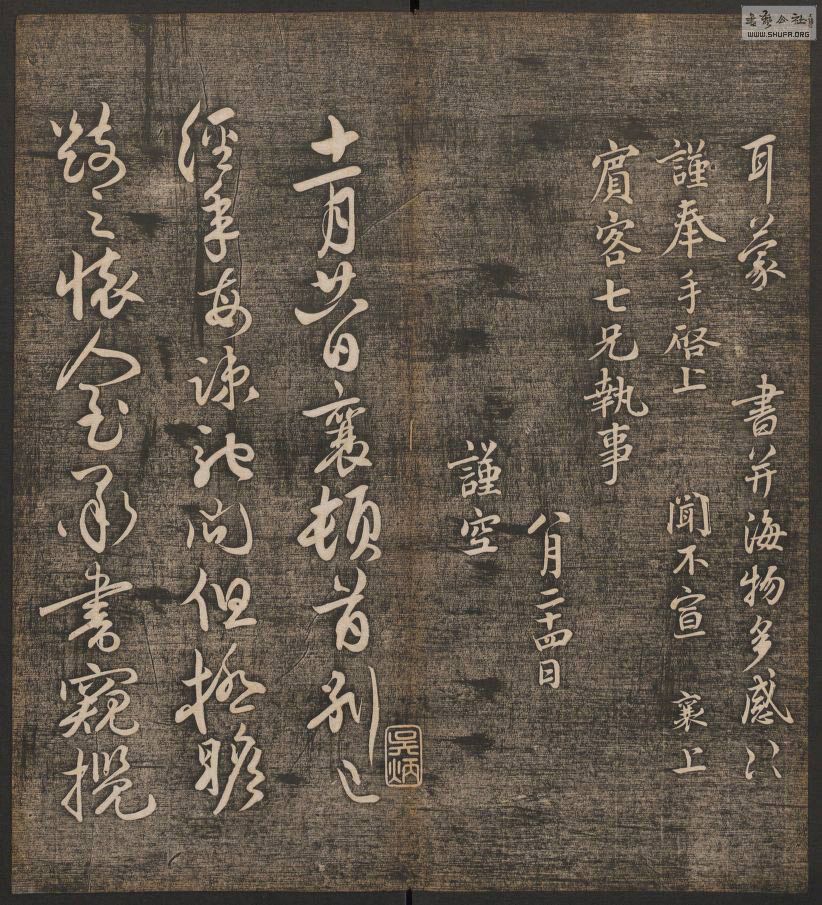 耳蒙 書并海物多感次
謹奉手啓上 聞不宣 襄上
賓客七兄執事
八月二十四日
謹空
吳炳
十一月廿日襄頓首別已
經年安疎馳問但極瞻
跂之懷人至承書窺攬
書藝公社
WWW.SHUFA.ORG